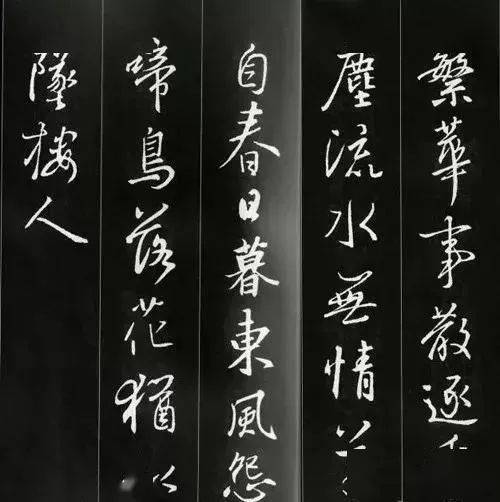 繁華事散逐
塵流水無情
自春日暮東風怨
啼鳥落花猶
墜樓人